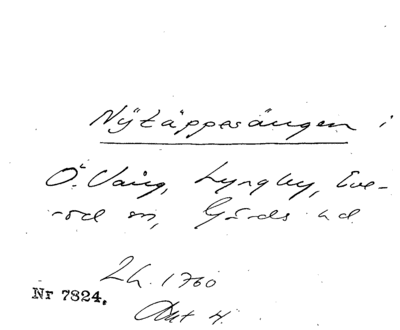 Nÿtäppesängen i
Ö. Vång, Lyngby, Eve-
röd sn, Gärds hd
Lh. 1760
Nr 7824.
Akt 4.